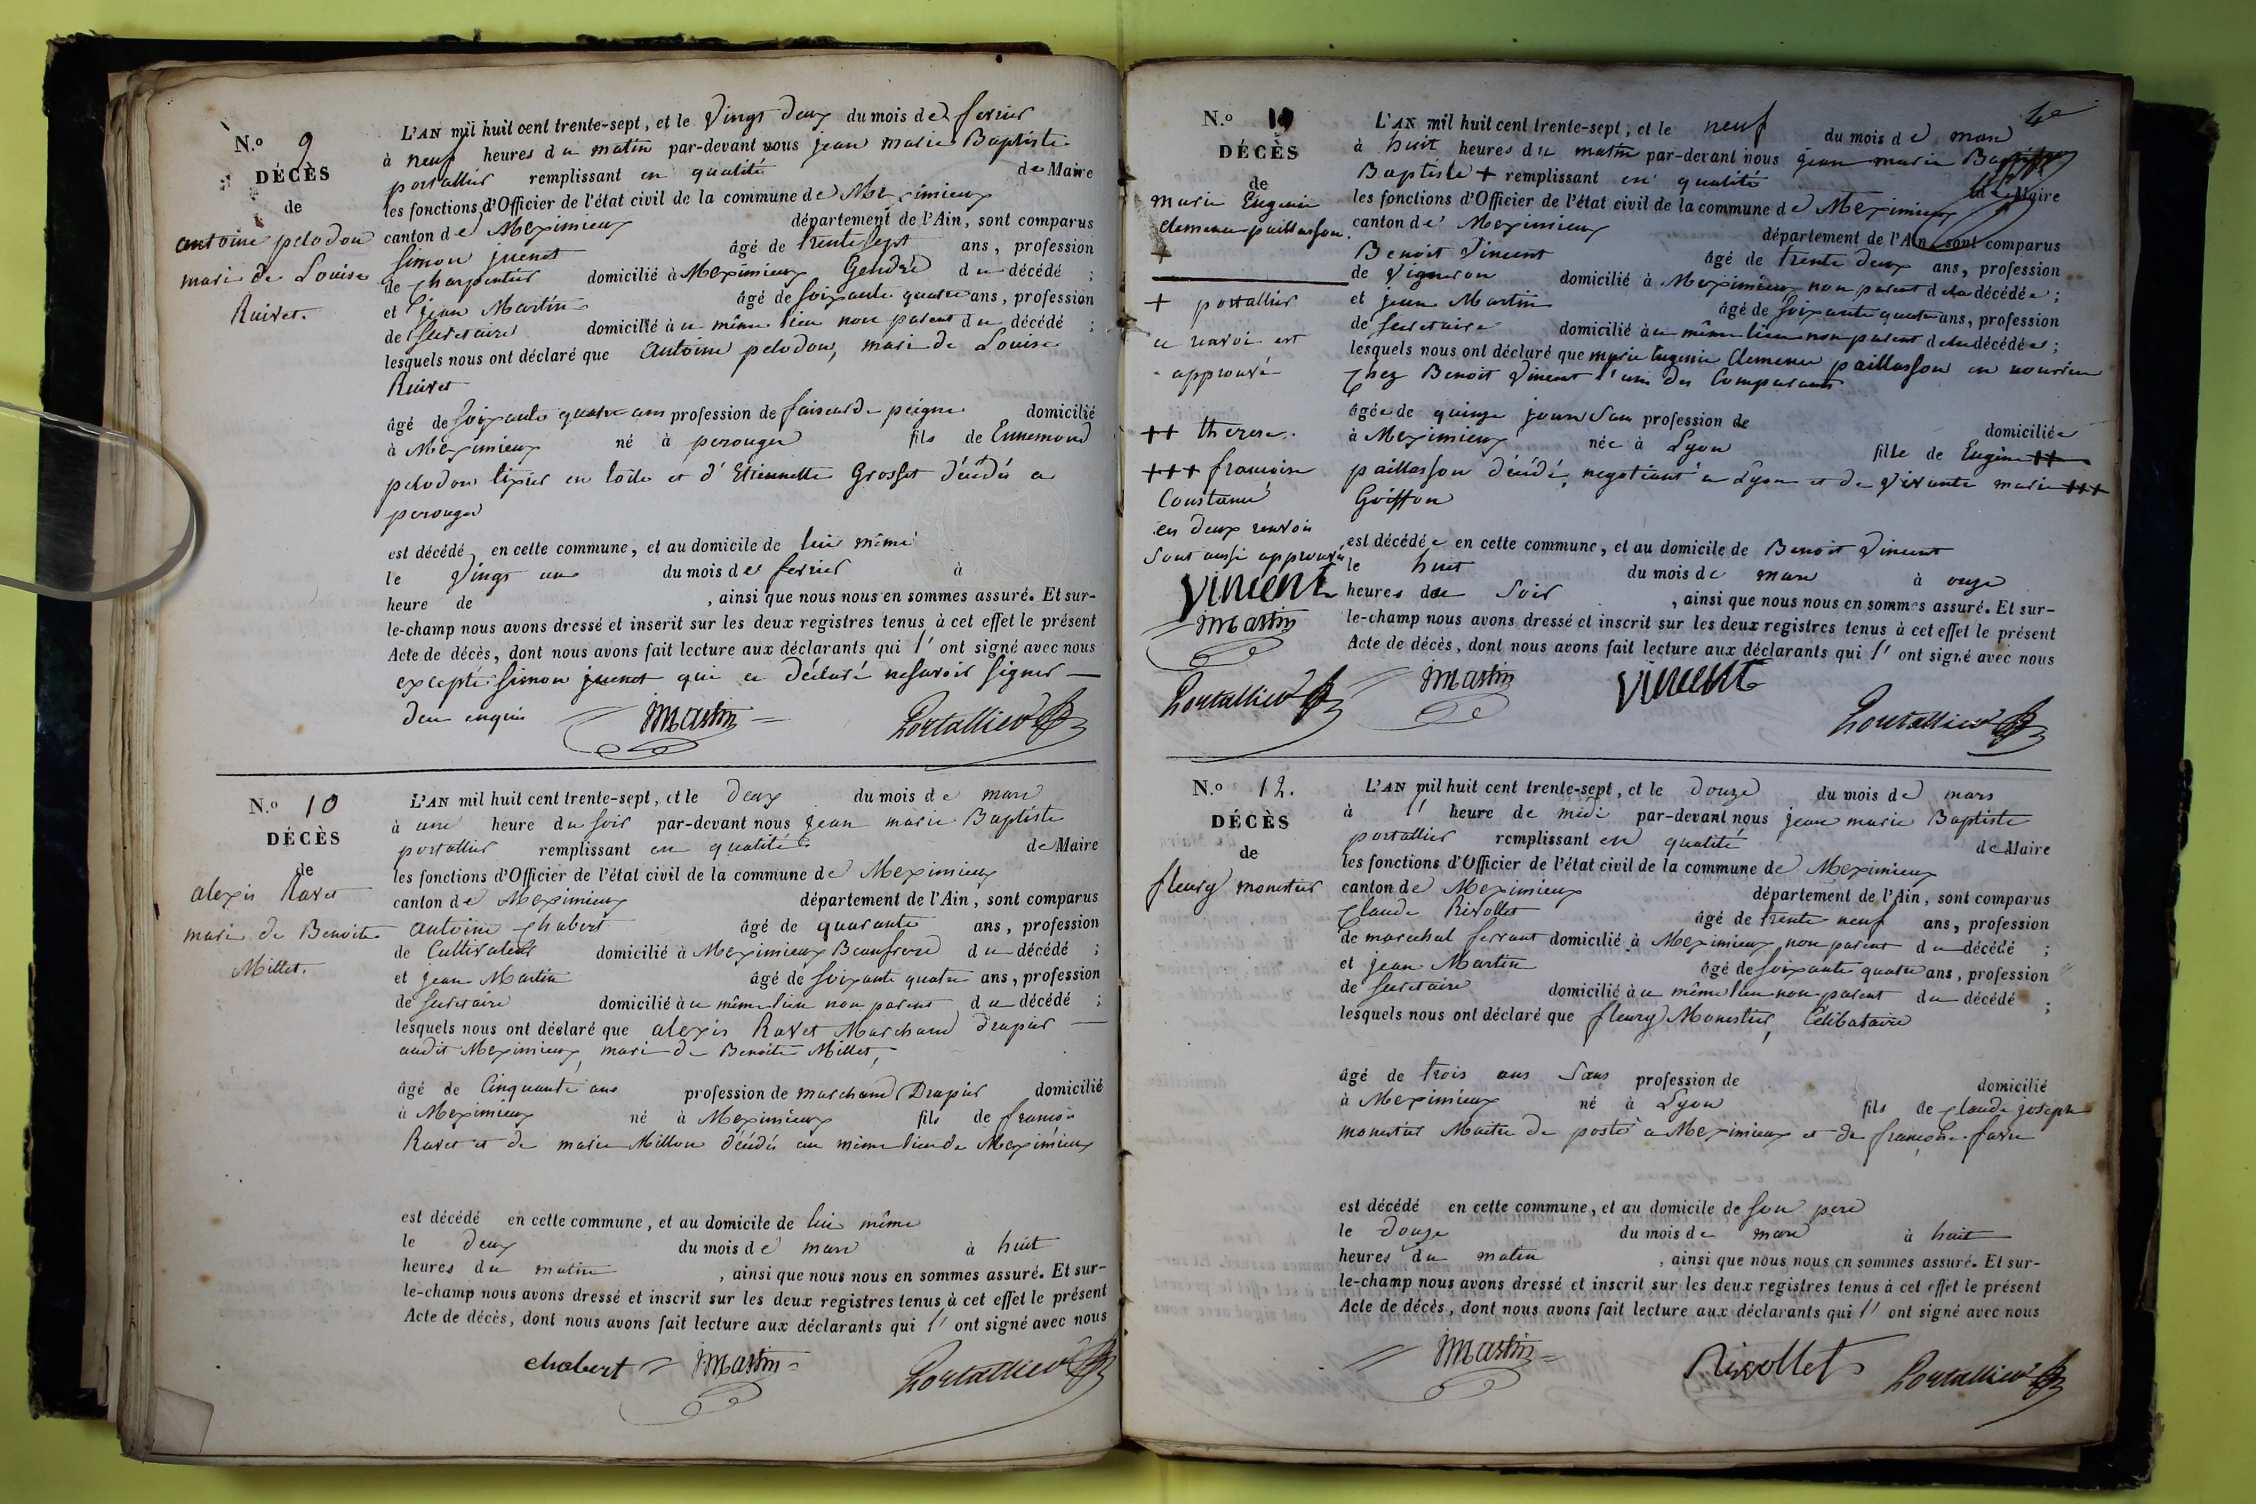 N.o 9
DÉCÈS
de
antoine pelodon
mari de Louise
Ruivet.
L'AN mil huit cent trente-sept, et le vingt deux du mois de fevrier
à neuf heures du matin par-devant nous jean marie Baptiste
portallier remplissant en qualité de Maire
les fonctions d'Officier de l'état civil de la commune de Meximieux
canton de Meximieux département de l'Ain, sont comparus
Simon juenet âgé de trente sept ans, profession
de charpentier domicilié à Meximieux Gendre du décédé ;
et jean Martin âgé de soixante quatre ans, profession
de secretaire domicilié à u même lieu non parent du décédé ;
lesquels nous ont déclaré que antoine pelodon, mari de Louise
Ruivet
âgé de soixante quatre ans profession de faiseur de peigne domicilié
à Meximieux né à perouges fils de Ennemond
pelodon tixier en toile et d'Etiennette Grosset décédés a
perouges
est décédé en cette commune, et au domicile de lui même
le vingt un du mois de fevrier à
heure de , ainsi que nous nous en sommes assuré. Et sur-
le-champ nous avons dressé et inscrit sur les deux registres tenus à cet effet le présent
Acte de décès, dont nous avons fait lecture aux déclarants qui l' ont signé avec nous
excepté Simon juenet qui a déclaré ne savoir signer
de ce enquis Martin Portallier
N.o 10
DÉCÈS
de
alexis Ravet
mari de Benoite
Millet.
L'AN mil huit cent trente-sept, et le deux du mois de mars
à une heure du soir par-devant nous jean marie Baptiste
portallier remplissant en qualité de Maire
les fonctions d'Officier de l'état civil de la commune de Meximieux
canton de Meximieux département de l'Ain, sont comparus
antoine chabert âgé de quarante ans, profession
de Cultivateur domicilié à Meximieux Beaufrere du décédé ;
et jean Martin âgé de soixante quatre ans, profession
de secretaire domicilié à u même lieu non parent du décédé ;
lesquels nous ont déclaré que alexis Ravet Marchand drapier
audit Meximieux, mari de Benoite Millet,
âgé de Cinquante ans profession de marchand Drapier domicilié
à Meximieux né à Meximieux fils de françois
Ravet et de marie Millon décédés au même lieu de Meximieux
est décédé en cette commune, et au domicile de lui même
le deux du mois de mars à huit
heures du matin , ainsi que nous nous en sommes assuré. Et sur-
le-champ nous avons dressé et inscrit sur les deux registres tenus à cet effet le présent
Acte de décès, dont nous avons fait lecture aux déclarants qui l' ont signé avec nous
chabert Martin Portallier
N.o 11
DÉCÈS
de
marie Eugenie
Clemence paillasson.
+
+ portallier
ce renvoi est
approuvé
++ therese.
+++ françoise
Constance
ces deux renvois
sont aussi approuvés
Vincent
Martin
Portallier
L'AN mil huit cent trente-sept, et le neuf du mois de mars
à huit heures du matin par-devant nous jean marie
Baptiste + remplissant en qualité de Maire
les fonctions d'Officier de l'état civil de la commune de Meximieux
canton de Meximieux département de l'Ain sont comparus
Benoit Vincent âgé de trente deux ans, profession
de vigneron domicilié à Meximieux non parent de la décédée ;
et jean Martin âgé de soixante quatre ans, profession
de secretaire domicilié à u même lieu non parent de la décédée ;
lesquels nous ont déclaré que marie Eugenie Clemence paillasson en nourrice
chez Benoit Vincent l'un des Comparants
âgée de quinze jours Sans profession de domiciliée
à Meximieux née à Lyon fille de Eugène ++
paillasson décédé, negotiant à Lyon et de vivante marie +++
Goiffon
est décédée en cette commune, et au domicile de Benoit Vincent
le huit du mois de mars à onze
heures du Soir , ainsi que nous nous en sommes assuré. Et sur-
le-champ nous avons dressé et inscrit sur les deux registres tenus à cet effet le présent
Acte de décès, dont nous avons fait lecture aux déclarants qui l' ont signé avec nous
Martin Vincent Portallier
N.o 12.
DÉCÈS
de
fleury monestier
L'AN mil huit cent trente-sept, et le douze du mois de mars
à l' heure de midi par-devant nous jean marie Baptiste
portallier remplissant en qualité de Maire
les fonctions d'Officier de l'état civil de la commune de Meximieux
canton de Meximieux département de l'Ain, sont comparus
Claude Rivollet âgé de trente neuf ans, profession
de marechal ferrant domicilié à Meximieux non parent du décédé ;
et jean Martin âgé de soixante quatre ans, profession
de secretaire domicilié à u même lieu non parent du décédé ;
lesquels nous ont déclaré que fleury Monestier, Célibataire
âgé de trois ans Sans profession de domicilié
à Meximieux né à Lyon fils de claude joseph
monestier Maitre de poste a Meximieux et de françoise favre
est décédé en cette commune, et au domicile de son pere
le douze du mois de mars à huit
heures du matin , ainsi que nous nous en sommes assuré. Et sur-
le-champ nous avons dressé et inscrit sur les deux registres tenus à cet effet le présent
Acte de décès, dont nous avons fait lecture aux déclarants qui l' ont signé avec nous
Martin Rivollet Portallier